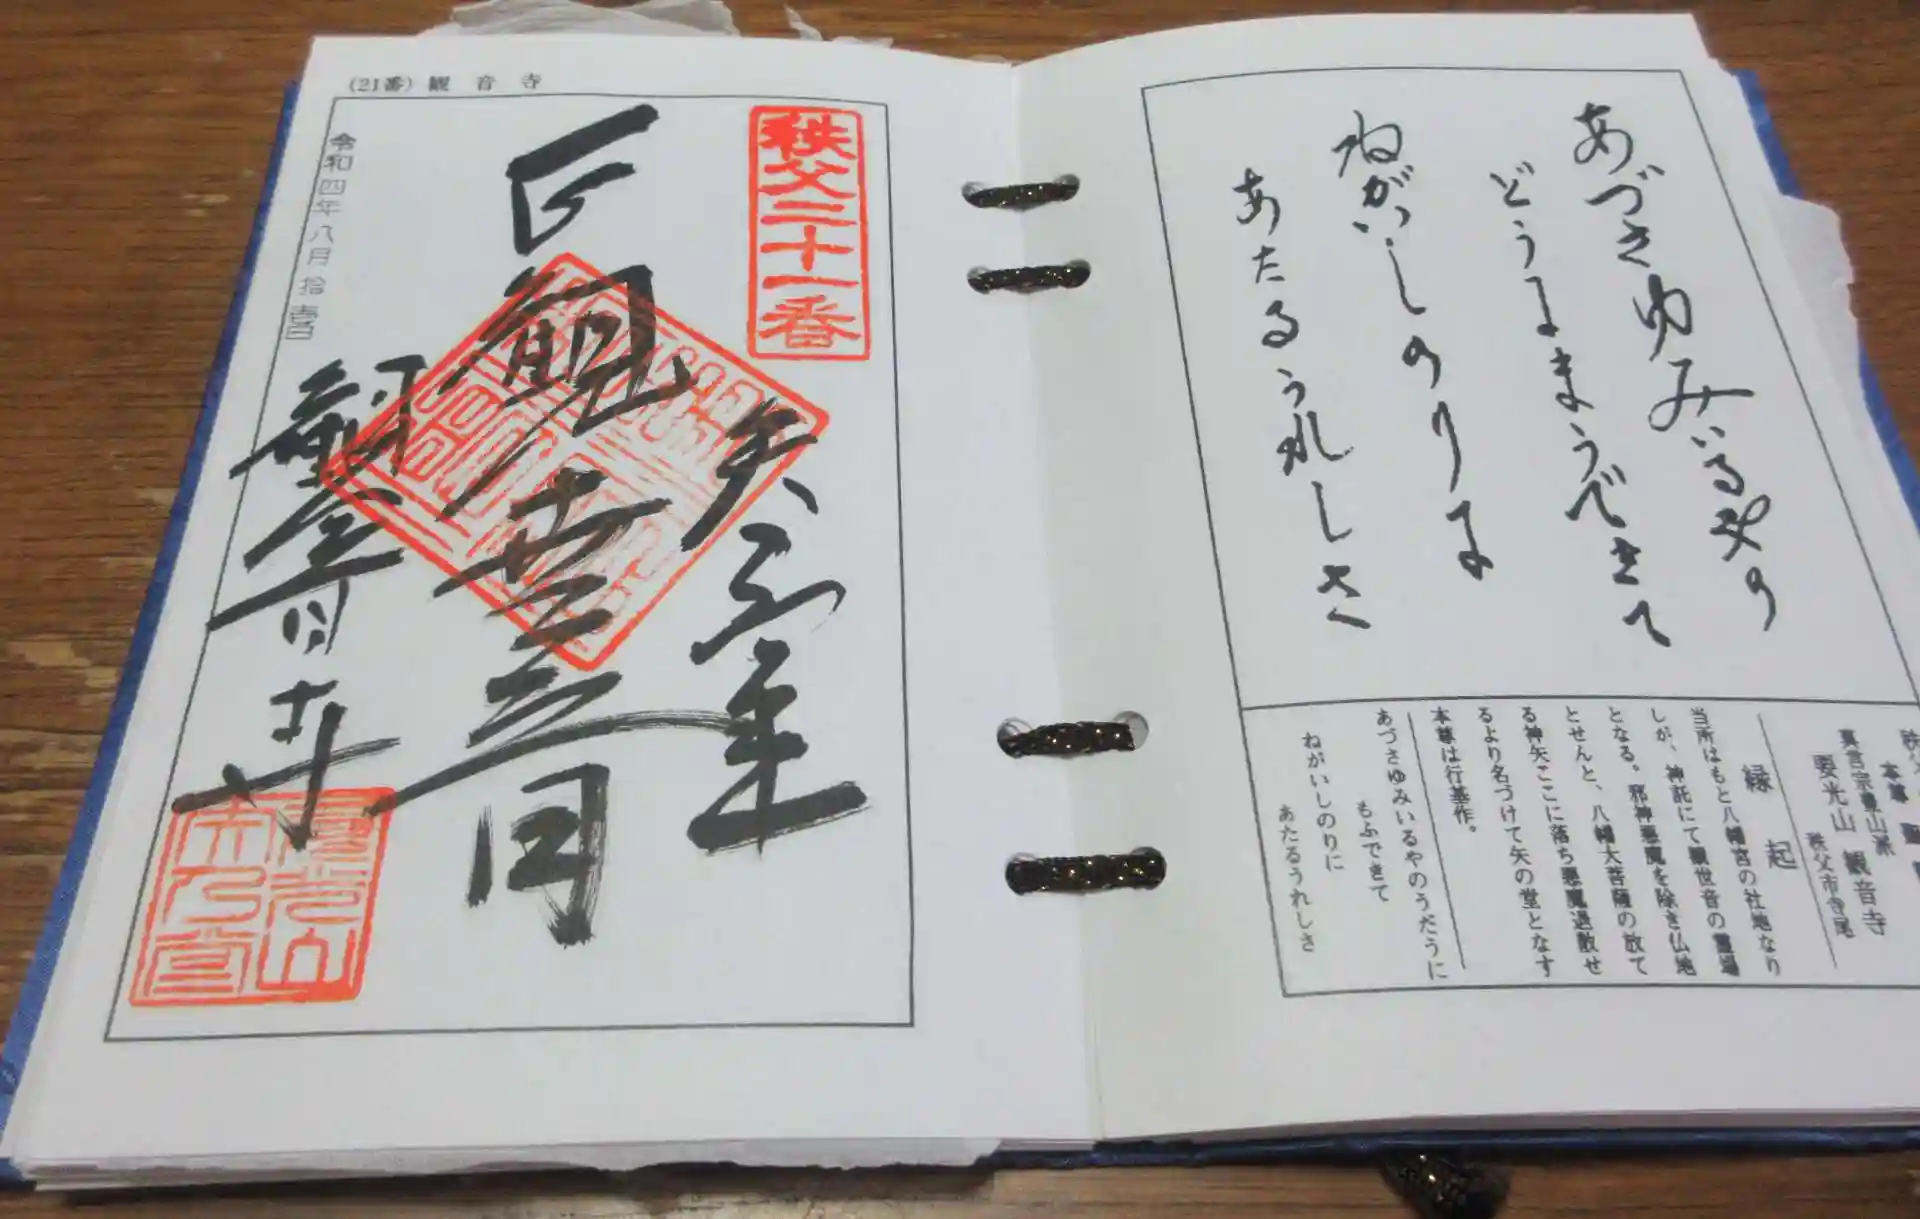 あづさゆみいるやの
どうにまうできて
ねがいしのりに
あたるうれしさ
本尊
真言宗豊山派
要光山 観音寺
秩父市寺尾
縁起
当所はもと八幡宮の社地なり
しが、神託にて観世音の霊場
となる。邪神悪魔を除き仏地
とせんと、八幡大菩薩の放て
る神矢ここに落ち悪魔退散せ
るより名づけて矢の堂となす
本尊は行基作。
あづさゆみいるやのうだうに
もふできて
ねがいしのりに
あたるうれしさ
(21番) 観音寺
秩父二十一番
聖観世音
観音寺
令和四年八月拾壹日